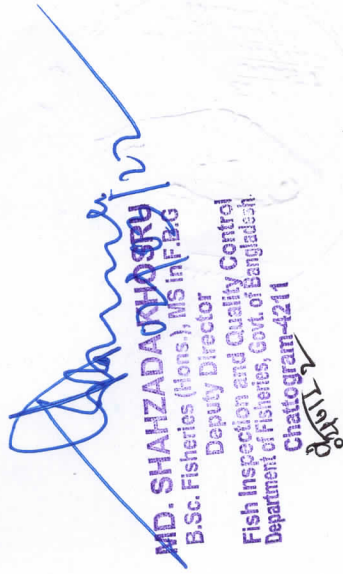 MD. SHAHZADA KHOSRU
B.Sc. Fisheries (Hons.), MS in F.B.G
Deputy Director
Fish Inspection and Quality Control
Department of Fisheries, Govt. of Bangladesh.
Chattogram-4211